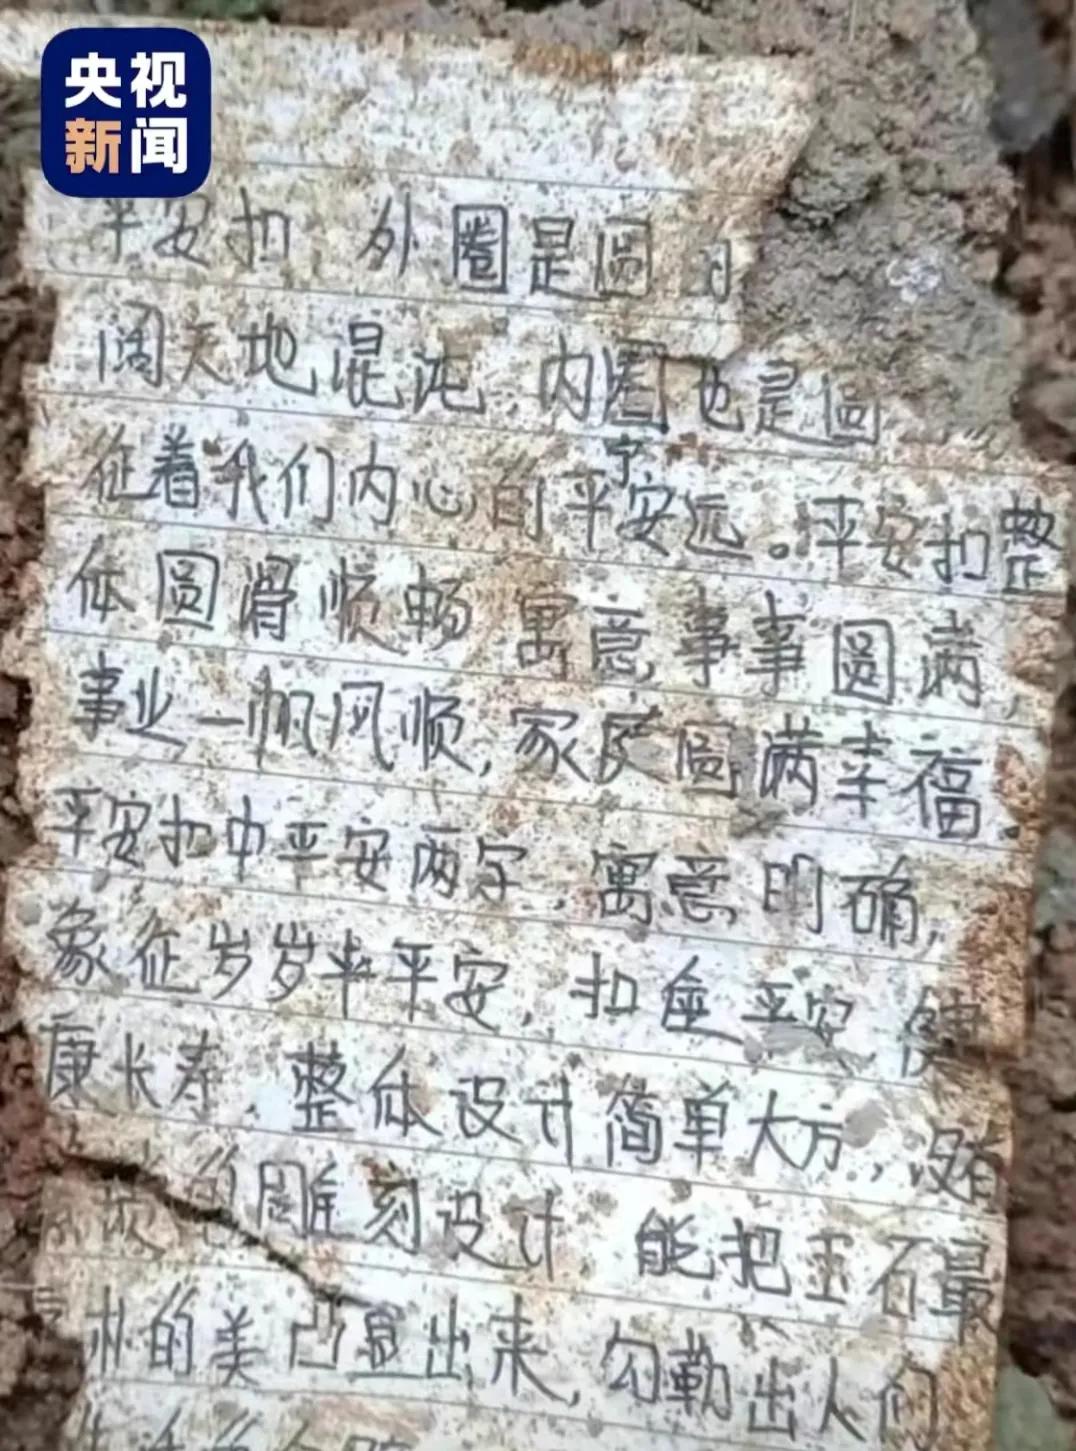 央视
新闻
平安扣 外圈是圆
阔天地混沌 内圈也是圆
征着我们内心的平安宁远。平安扣整
体圆滑顺畅 寓意事事圆满,
事业一帆风顺,家庭圆满幸福.
平安扣中平安两字,寓意明确,
象征岁岁平安,扣金平安,健
康长寿.整体设计简单大方,,没有
的雕刻设计 能把玉石最
的美凸显出来,勾勒出人们